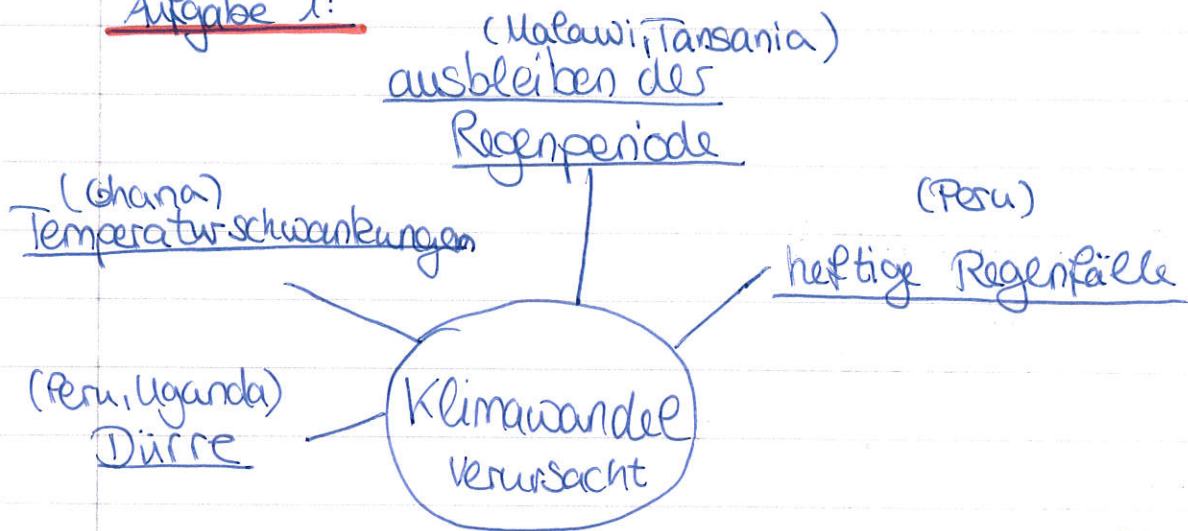 Aufgabe 1:
(Malawi, Tansania)
ausbleiben der
Regenperiode
(Ghana)
Temperaturschwankungen
(Peru)
heftige Regenfälle
(Peru, Uganda)
Dürre
Klimawandel
verursacht